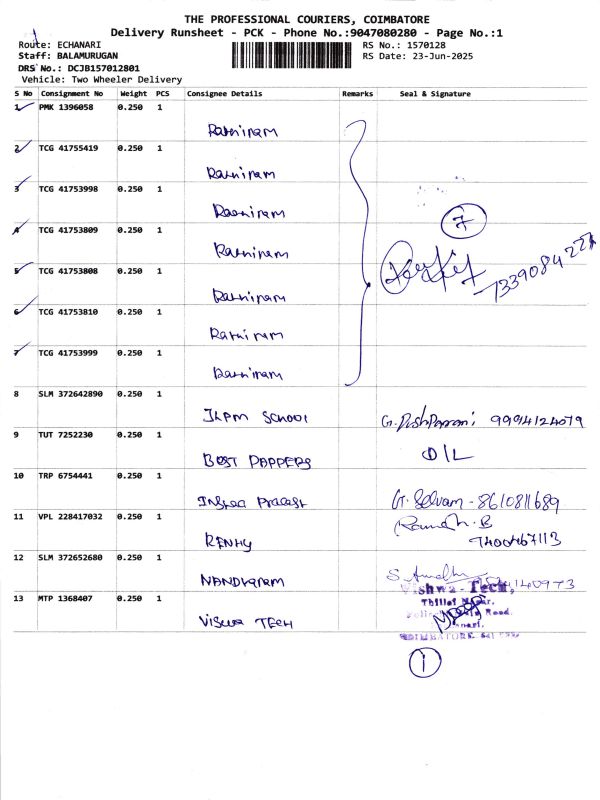 THE PROFESSIONAL COURIERS, COIMBATORE
Delivery Runsheet - PCK - Phone No.:9047080280 - Page No.:1
Route: ECHANARI
RS No.: 1570128
Staff: BALAMURUGAN
RS Date: 23-Jun-2025
DRS No.: DCJB157012801
Vehicle: Two Wheeler Delivery
S No Consignment No Weight PCS Consignee Details Remarks Seal & Signature
1 PMK 1396058 0.250 1
Ratniram
2 TCG 41755419 0.250 1
Ratniram
3 TCG 41753998 0.250 1
Ratniram
7
4 TCG 41753809 0.250 1
Ratniram
5 TCG 41753808 0.250 1
Ratniram
6 TCG 41753810 0.250 1
Ratniram
7 TCG 41753999 0.250 1
Ratniram
8 SLM 372642890 0.250 1
SCHOOL 9994124079
9 TUT 7252230 0.250 1
BEST PAPPERS D/L
10 TRP 6754441 0.250 1
G. Selvam - 8610811689
11 VPL 228417032 0.250 1
7400467113
12 SLM 372652680 0.250 1
NANDHARAM
Vishwa-Tech,
13 MTP 1368407 0.250 1
VISWA TECH
COIMBATORE
1